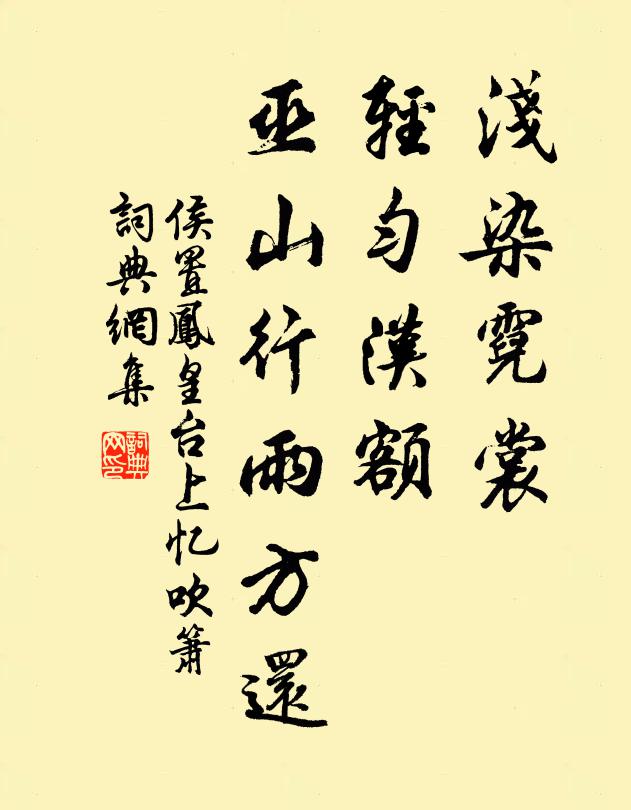 淺染霓裳
輕勻漢額
巫山行雨方還
侯置鳳皇台上忆吹簫
詞典網集
詞典网印